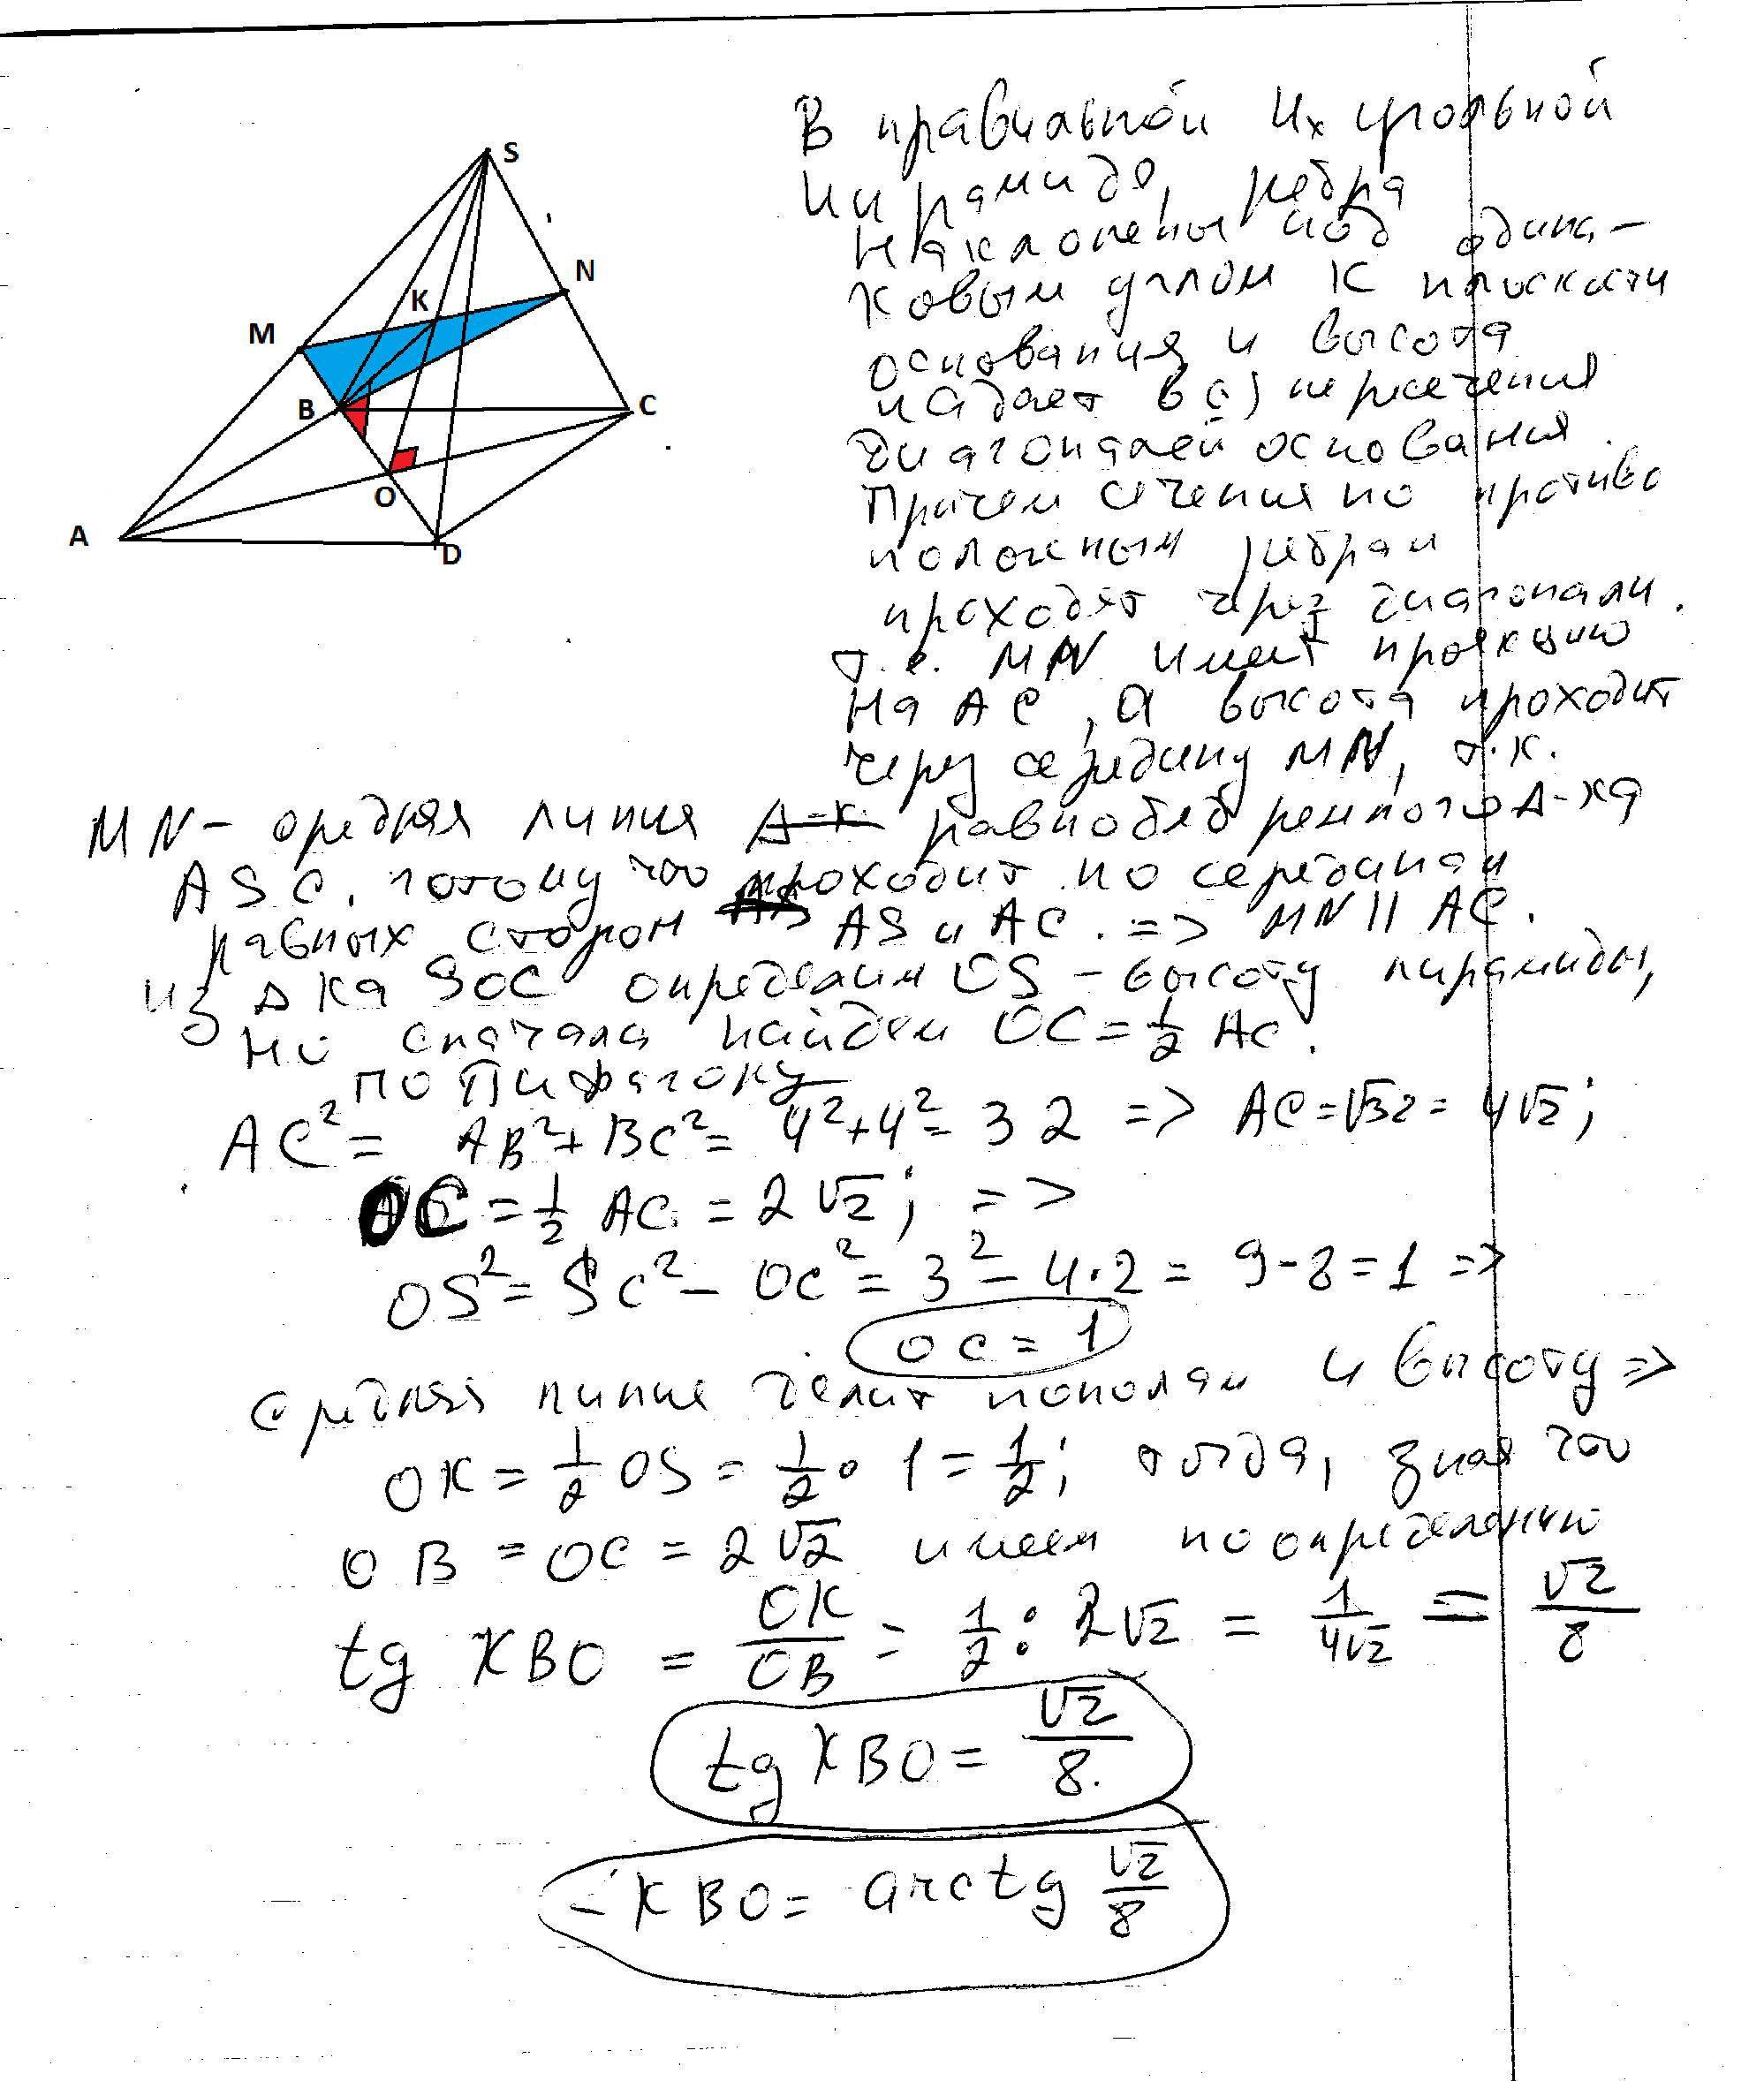 S
N
K
M
B
C
O
A
D
В правильной 4х угольной
пирамиде, ребра
наклонены под одина-
ковым углом к плоскости
основания и высота
падает в (·) пересечения
диагоналей основания.
Причем сечения по противо
положным ребрам
проходят через диагонали.
т.е. MN имеет проекцию
на AC, а высота проходит
через середину MN, т.к.
MN - средняя линия равнобедренного Δ-ка
ASC, потому что проходит по серединам
равных сторон AS и AC. => MN || AC.
из Δ ка SOC определим OS - высоту пирамиды,
но сначала найдем OC = 1/2 AC.
по Пифагору
AC² = AB² + BC² = 4² + 4² = 32 => AC = √32 = 4√2;
OC = 1/2 AC = 2√2; =>
OS² = SC² - OC² = 3² - 4·2 = 9 - 8 = 1 =>
OC = 1
Средняя линия делит пополам и высоту =>
OK = 1/2 OS = 1/2 · 1 = 1/2; тогда, зная что
OB = OC = 2√2 имеем по определению
tg KBO = OK/OB = 1/2 : 2√2 = 1/4√2 = √2/8
tg KBO = √2/8.
- KBO = arctg √2/8